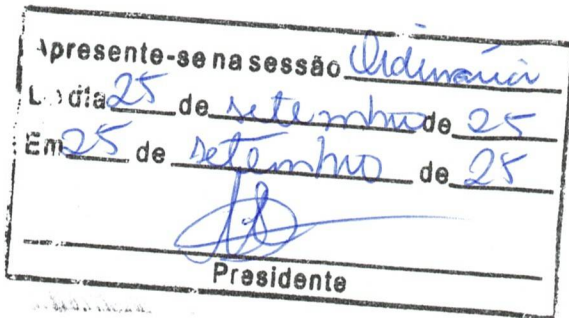 Apresente-se na sessão Ordinária
do dia 25 de setembro de 25
Em 25 de setembro de 25
Presidente